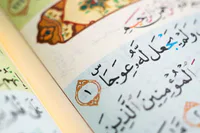 وَلَمْ يَجْعَل لَّهُ عِوَجَا ۜ
١
الْمُؤْمِنِينَ الَّذِينَ